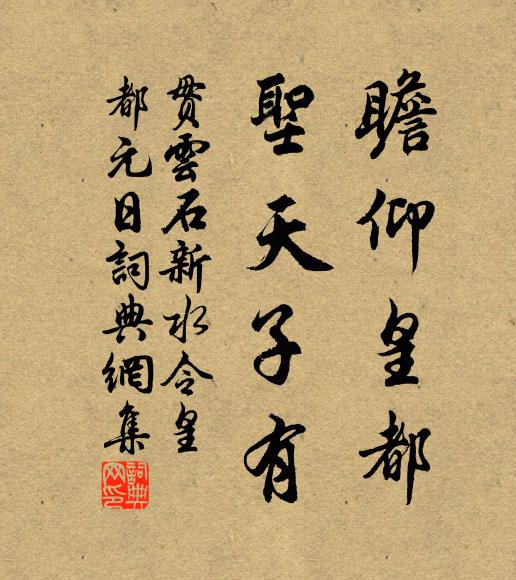 瞻仰皇都
聖天子有
貫雲石新水令皇
都元日詞典網集
詞典網印